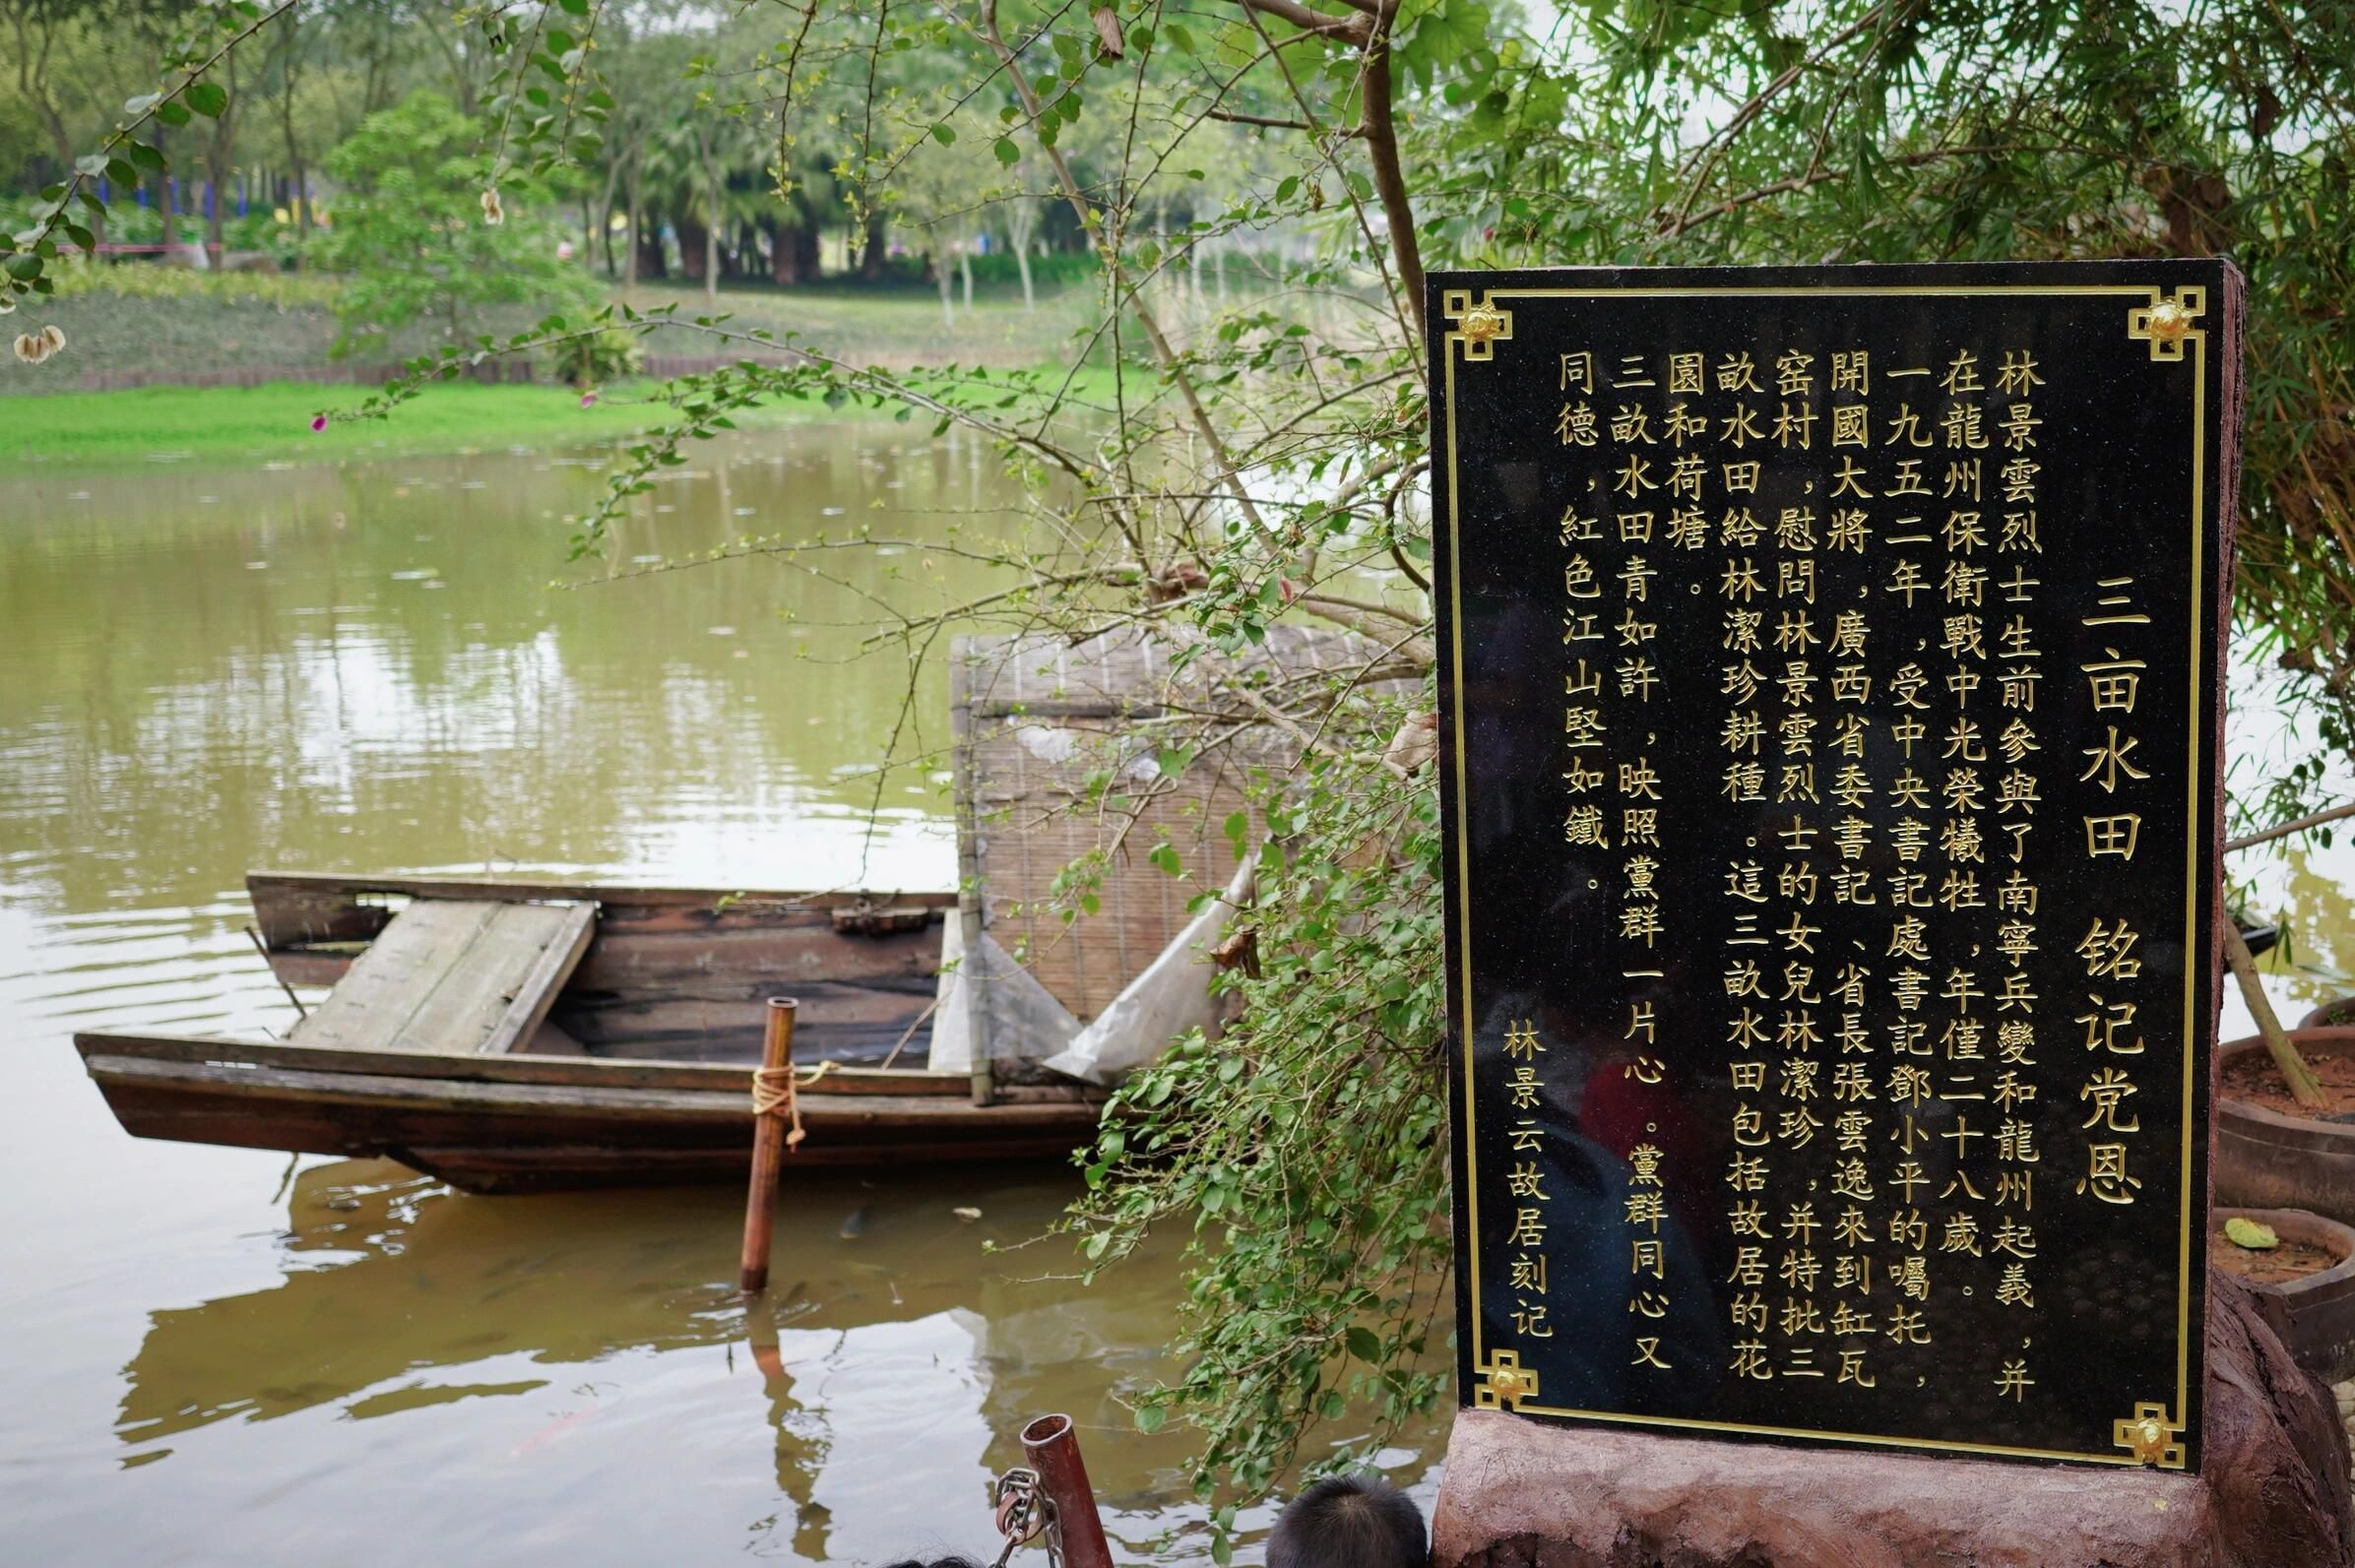 三亩水田 铭记党恩
林景雲烈士生前參與了南寧兵變和龍州起義，并
在龍州保衛戰中光榮犧牲，年僅二十八歲。
一九五二年，受中央書記處書記鄧小平的囑托，
開國大將，廣西省委書記、省長張雲逸來到缸瓦
窑村，慰問林景雲烈士的女兒林潔珍，并特批三
畝水田給林潔珍耕種。這三畝水田包括故居的花
園和荷塘。
三畝水田青如許，映照黨群一片心。黨群同心又
同德，紅色江山堅如鐵。
林景云故居刻记